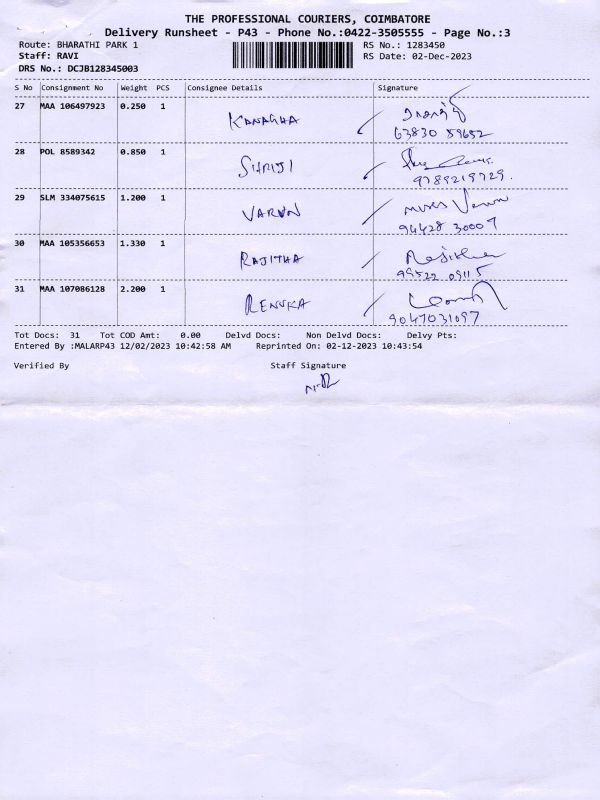 THE PROFESSIONAL COURIERS, COIMBATORE
Delivery Runsheet - P43 - Phone No.:0422-3505555 - Page No.:3
Route: BHARATHI PARK 1 RS No.: 1283450
Staff: RAVI RS Date: 02-Dec-2023
DRS No.: DCJB128345003
S No Consignment No Weight PCS Consignee Details Signature
27 MAA 106497923 0.250 1 KANAGHA
63830 59652
28 POL 8589342 0.850 1 SHRIJI
9789219729.
29 SLM 334075615 1.200 1 VARUN
94428 30007
30 MAA 105356653 1.330 1 RAJITHA
99522 09115
31 MAA 107086128 2.200 1 RENUKA
9047031097
Tot Docs: 31 Tot COD Amt: 0.00 Delvd Docs: Non Delvd Docs: Delvy Pts:
Entered By :MALARP43 12/02/2023 10:42:58 AM Reprinted On: 02-12-2023 10:43:54
Verified By Staff Signature